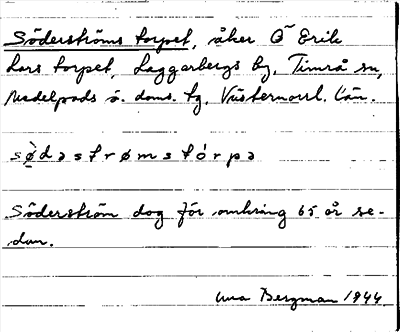 Söderströms torpet, åker Ö Erik
Lars torpet, Laggarbergs by, Timrå sn,
Medelpads ö. doms. tg, Västernorrl. län.
sø̀dəstrømstórpə
Söderström dog för omkring 65 år se-
dan.
Bergman 1944